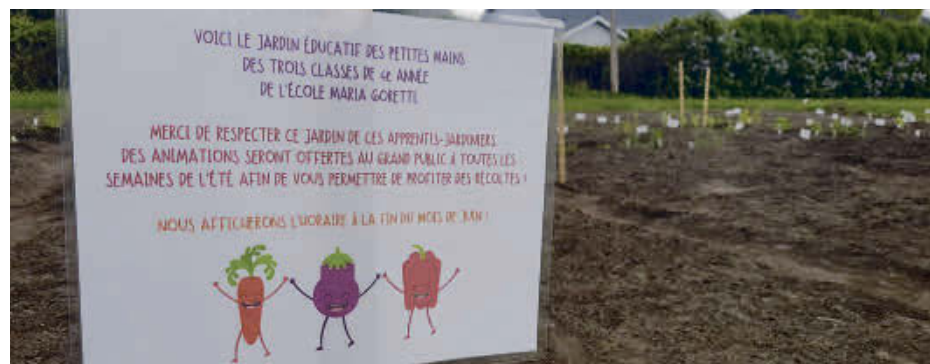 VOICI LE JARDIN ÉDUCATIF DES PETITES MAINS
DES TROIS CLASSES DE 4e ANNÉE
DE L'ÉCOLE MARIA GORETTI.
MERCI DE RESPECTER CE JARDIN DE CES APPRENTIS-JARDINIERS.
DES ANIMATIONS SERONT OFFERTES AU GRAND PUBLIC À TOUTES LES
SEMAINES DE L'ÉTÉ AFIN DE VOUS PERMETTRE DE PROFITER DES RÉCOLTES !
NOUS AFFICHERONS L'HORAIRE À LA FIN DU MOIS DE JUIN !